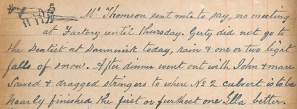 Mr Thomson sent note to say, no meeting
at Factory until Thursday. Gerty did not go to
the Dentist at Dannevirk today, rain & one or two light
falls of snow. After dinner went out with John & mare
Sawed & dragged stringers to where No 2 culvert is to be
Nearly finished the first or furthest one. Ella better.